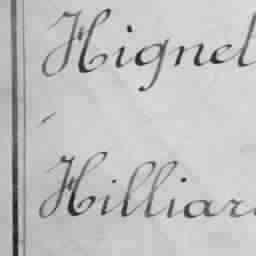 Hignel
Hilliar